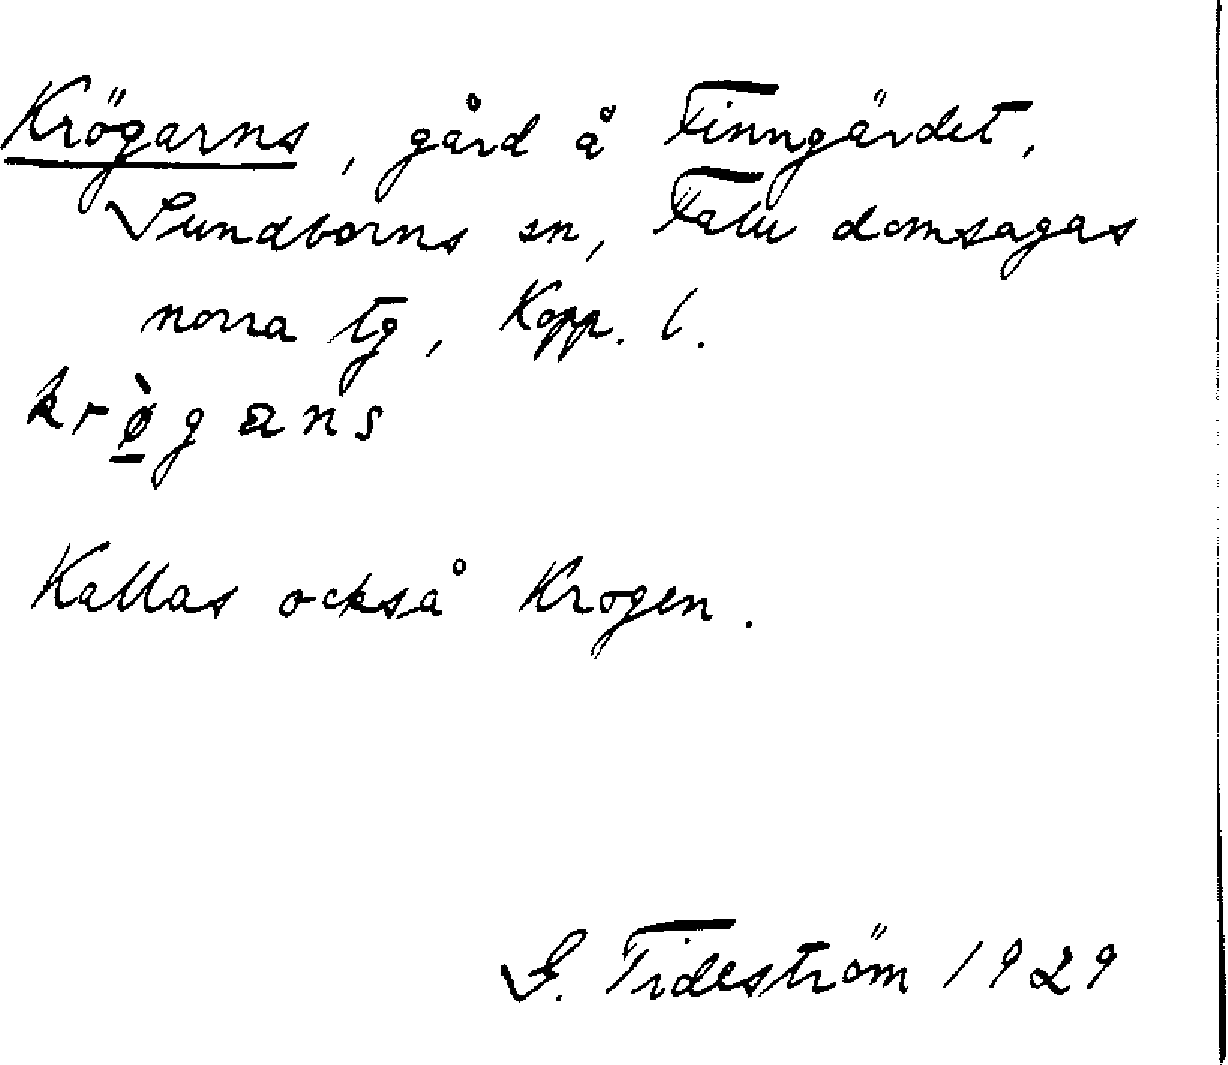 Krögarns, gård å Finngärdet,
Sundborns sn, Falu domsagas
norra tg, Kopp. l.
krø̱̀gans
Kallas också Krogen.
G. Tideström 1929